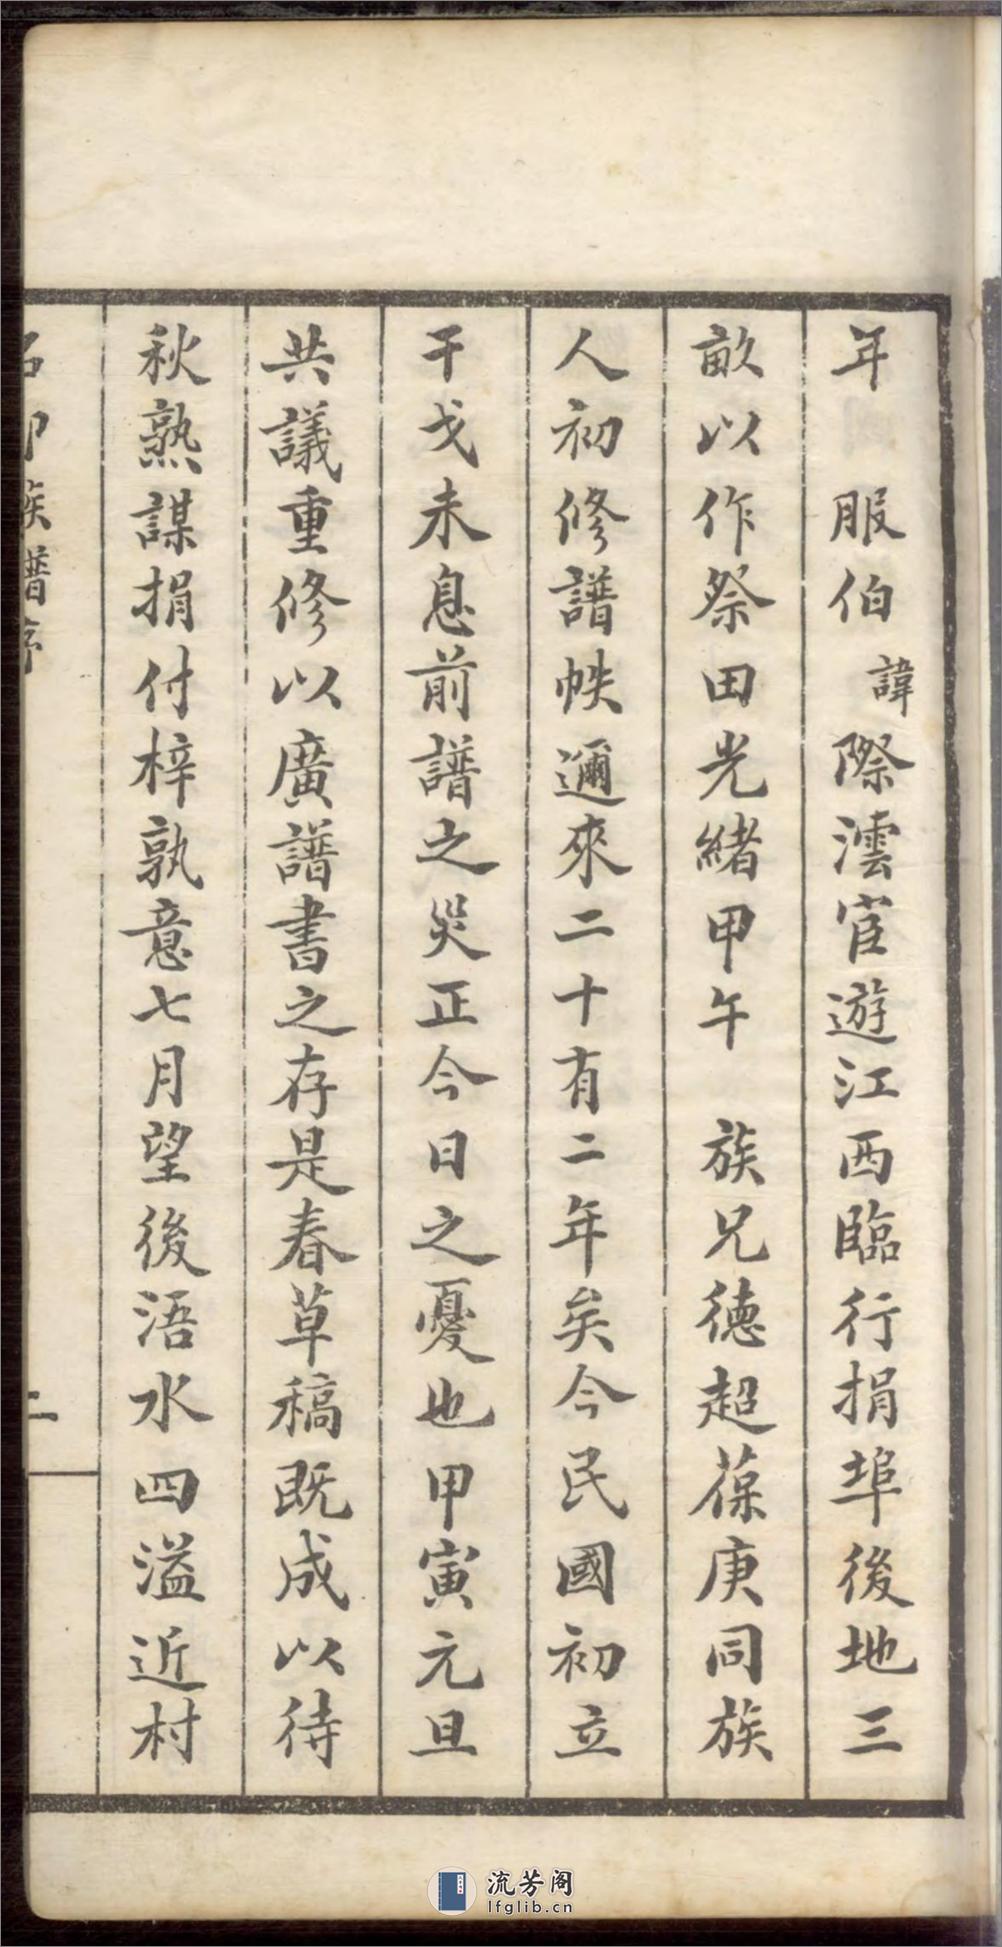 年　服伯諱際澐宦遊江西臨行捐埠後地三
畝以作祭田光緒甲午　族兄德超葆庚同族
人初修譜帙邇來二十有二年矣今民國初立
干戈未息前譜之災正今日之憂也甲寅元旦
共議重修以廣譜書之存是春草稿既成以待
秋熟謀捐付梓孰意七月望後浯水四溢近村
族譜序
二
流芳阁
lfglib.cn